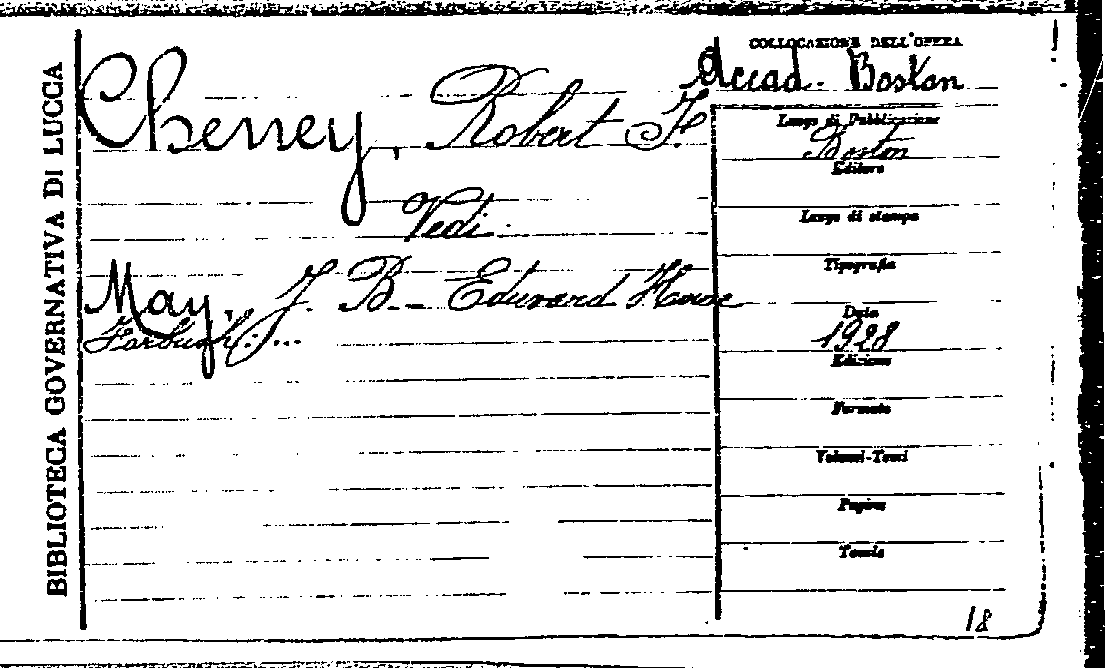 BIBLIOTECA GOVERNATIVA DI LUCCA
Cheney, Robert F.
Vedi
May, J. B. - Edward Howe
Forbush. ...
COLLOCAZIONE DELL'OPERA
Accad. Boston
Luogo di Pubblicazione
Boston
Editore
Luogo di stampa
Tipografia
Data
1928
Edizione
Formato
Volumi-Tomi
Pagine
Tomie
18